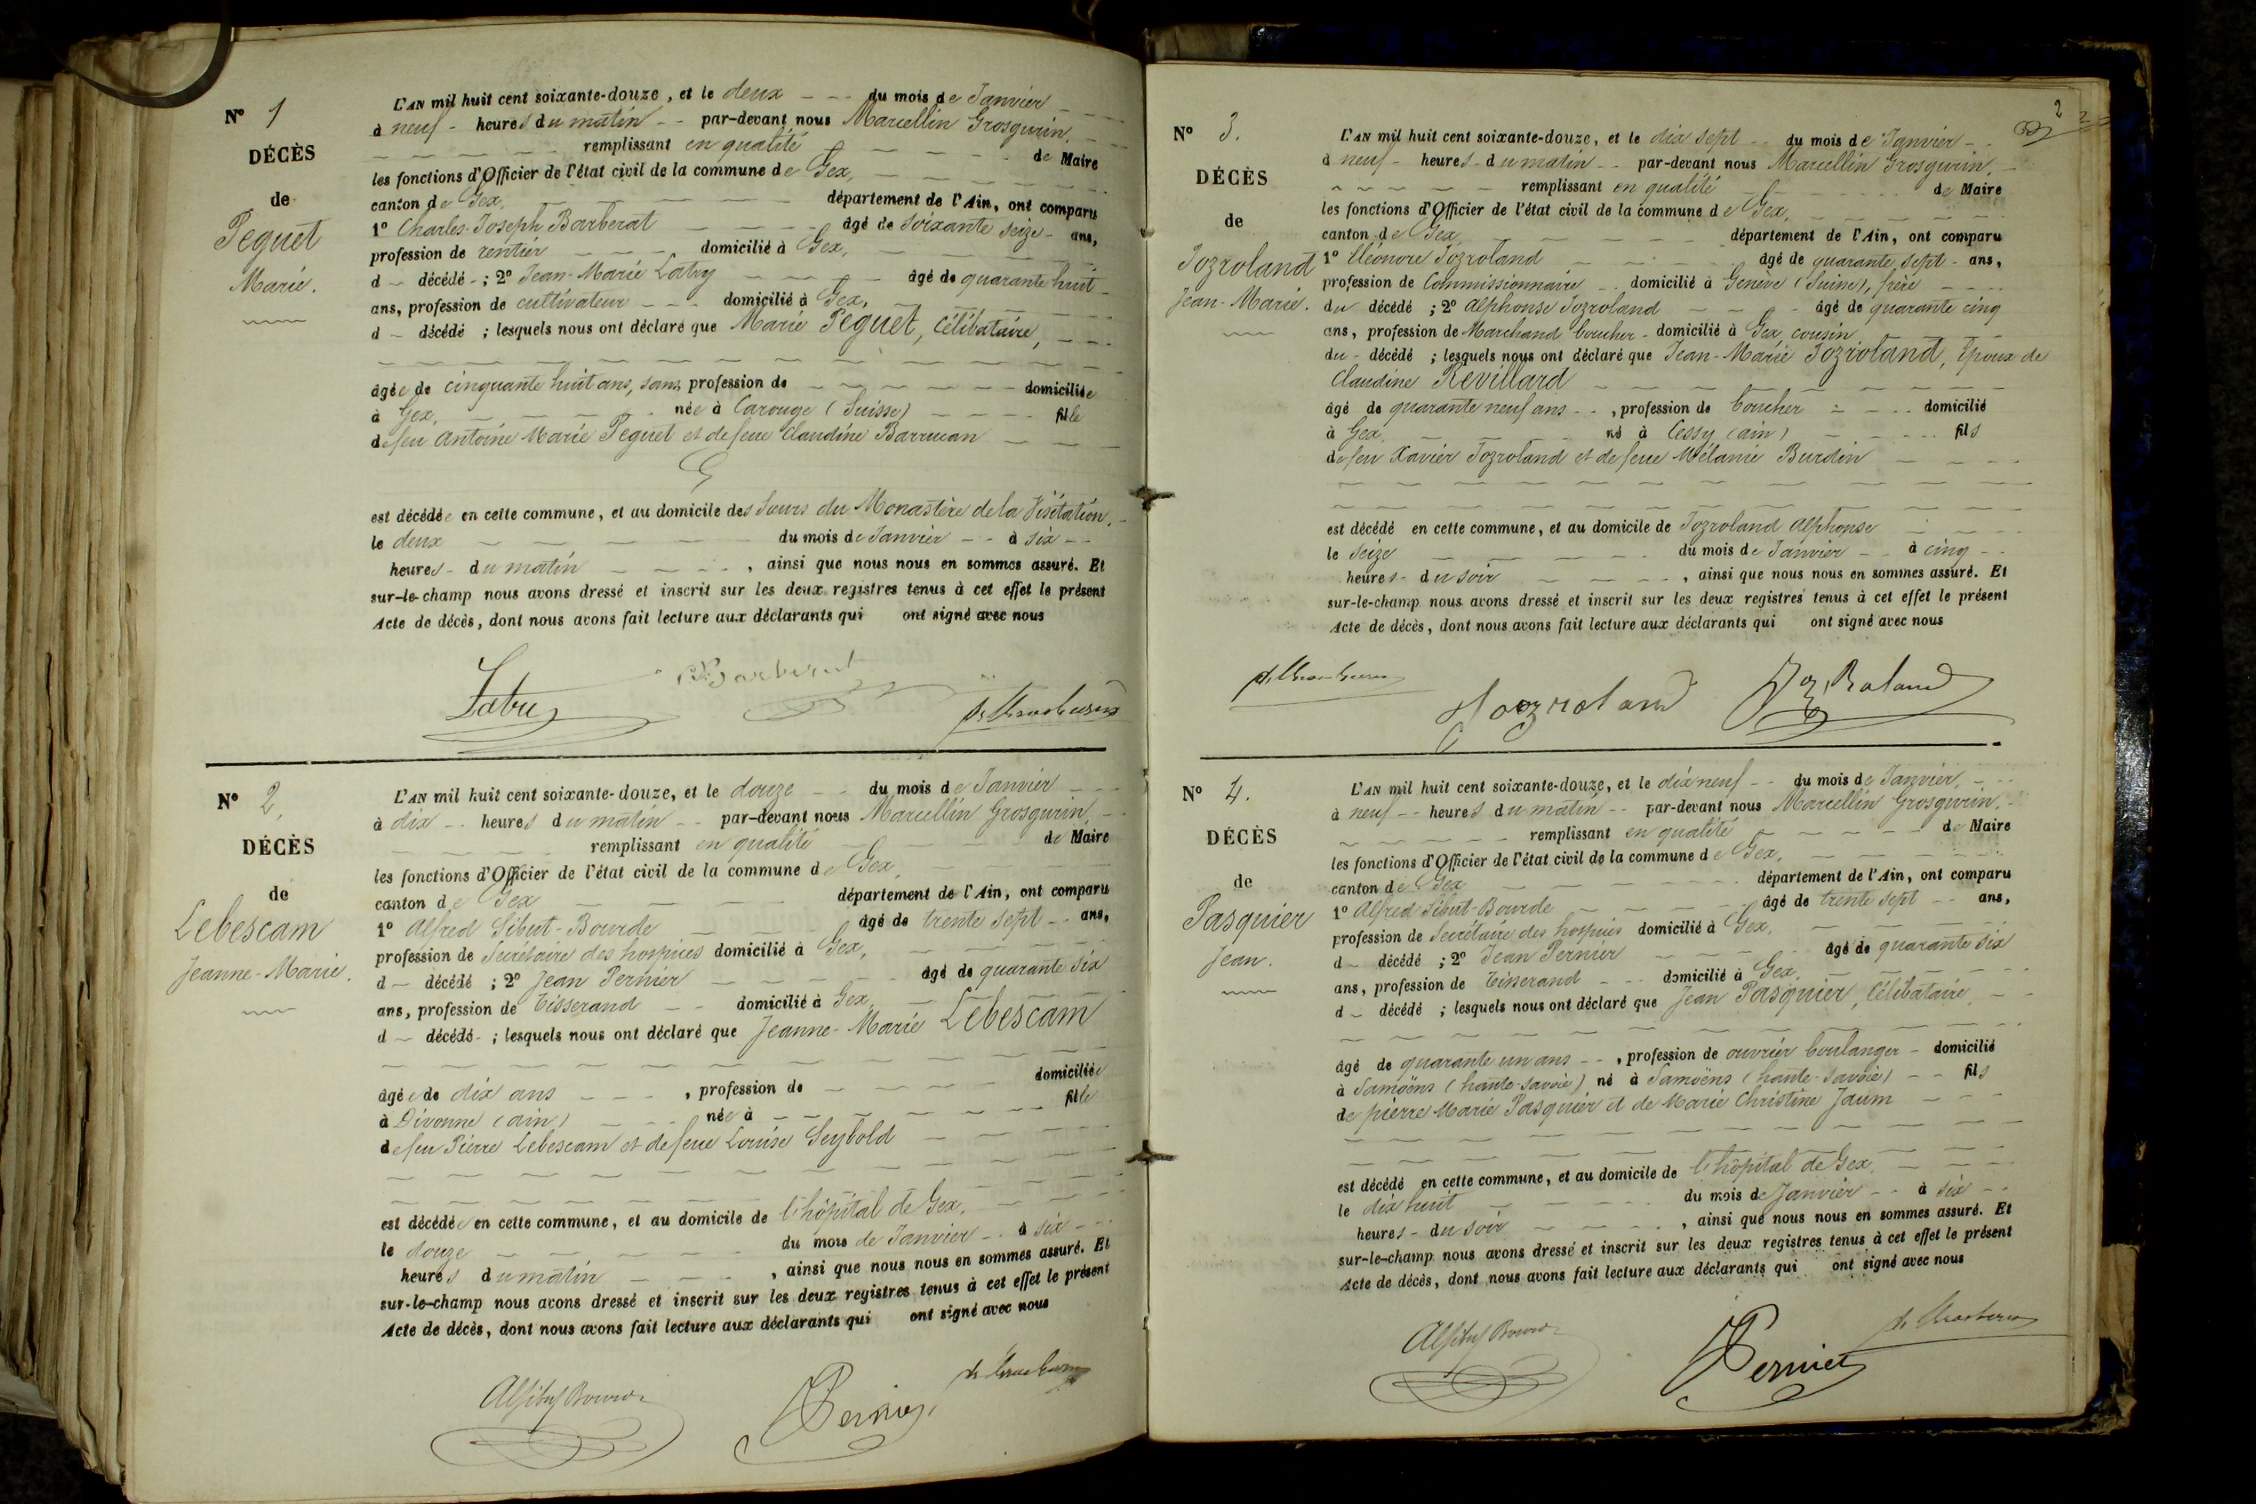 N° 1
DÉCÈS
de
Peguet
Marie.
L'AN mil huit cent soixante-douze, et le deux du mois de Janvier
à neuf heures du matin par-devant nous Marcellin Grosgurin,
remplissant en qualité de Maire
les fonctions d'Officier de l'état civil de la commune de Gex,
canton de Gex, département de l'Ain, ont comparu
1° Charles-Joseph Barberat âgé de soixante seize ans,
profession de rentier domicilié à Gex,
d décédé ; 2° Jean-Marie Latry âgé de quarante huit
ans, profession de cultivateur domicilié à Gex,
d décédé ; lesquels nous ont déclaré que Marie Peguet, célibataire,
âgée de cinquante huit ans, sans profession de domiciliée
à Gex, née à Carouge (Suisse) fille
de feu Antoine Marie Peguet et de feue Claudine Barrucan
est décédée en cette commune, et au domicile des Sœurs du Monastère de la Visitation,
le deux du mois de Janvier à six
heures du matin, ainsi que nous nous en sommes assuré. Et
sur-le-champ nous avons dressé et inscrit sur les deux registres tenus à cet effet le présent
Acte de décès, dont nous avons fait lecture aux déclarants qui ont signé avec nous
Barberat
N° 2,
DÉCÈS
de
Lebescam
Jeanne-Marie.
L'AN mil huit cent soixante-douze, et le douze du mois de Janvier
à dix heures du matin par-devant nous Marcellin Grosgurin,
remplissant en qualité de Maire
les fonctions d'Officier de l'état civil de la commune de Gex,
canton de Gex département de l'Ain, ont comparu
1° Alfred Sibut-Bourde âgé de trente sept ans,
profession de Secrétaire des hospices domicilié à Gex,
d décédé ; 2° Jean Pernier âgé de quarante six
ans, profession de Tisserand domicilié à Gex,
d décédé ; lesquels nous ont déclaré que Jeanne-Marie Lebescam
âgée de dix ans, profession de domiciliée
à Divonne (ain) née à fille
de feu Pierre Lebescam et de feue Louise Seybold
est décédée en cette commune, et au domicile de l'hôpital de Gex,
le douze du mois de Janvier à six
heures du matin, ainsi que nous nous en sommes assuré. Et
sur-le-champ nous avons dressé et inscrit sur les deux registres tenus à cet effet le présent
Acte de décès, dont nous avons fait lecture aux déclarants qui ont signé avec nous
Pernier
2
N° 3.
DÉCÈS
de
Jozroland
Jean-Marie.
L'AN mil huit cent soixante-douze, et le dix sept du mois de Janvier
à neuf heures du matin par-devant nous Marcellin Grosgurin,
remplissant en qualité de Maire
les fonctions d'Officier de l'état civil de la commune de Gex,
canton de Gex, département de l'Ain, ont comparu
1° Eléonore Jozroland âgé de quarante sept ans,
profession de Commissionnaire domicilié à Genève (Suisse), frère
du décédé ; 2° Alphonse Jozroland âgé de quarante cinq
ans, profession de Marchand boucher domicilié à Gex, cousin
du décédé ; lesquels nous ont déclaré que Jean-Marie Jozroland, Epoux de
Claudine Revillard
âgé de quarante neuf ans, profession de boucher domicilié
à Gex, né à Cessy (ain) fils
de feu Xavier Jozroland et de feue Mélanie Burdin
est décédé en cette commune, et au domicile de Jozroland Alphonse
le seize du mois de Janvier à cinq
heures du soir, ainsi que nous nous en sommes assuré. Et
sur-le-champ nous avons dressé et inscrit sur les deux registres tenus à cet effet le présent
Acte de décès, dont nous avons fait lecture aux déclarants qui ont signé avec nous
Jozroland
N° 4.
DÉCÈS
de
Pasquier
Jean.
L'AN mil huit cent soixante-douze, et le dix neuf du mois de Janvier,
à neuf heures du matin par-devant nous Marcellin Grosgurin,
remplissant en qualité de Maire
les fonctions d'Officier de l'état civil de la commune de Gex,
canton de Gex département de l'Ain, ont comparu
1° Alfred Sibut-Bourde âgé de trente sept ans,
profession de Secrétaire des hospices domicilié à Gex,
d décédé ; 2° Jean Pernier âgé de quarante six
ans, profession de Tisserand domicilié à Gex,
d décédé ; lesquels nous ont déclaré que Jean Pasquier, Célibataire
âgé de quarante un ans, profession de ouvrier boulanger domicilié
à Samoëns (haute-savoie) né à Samoëns (haute-savoie) fils
de pierre Marie Pasquier et de Marie Christine Jaum
est décédé en cette commune, et au domicile de l'hôpital de Gex,
le dix huit du mois de Janvier à six
heures du soir, ainsi que nous nous en sommes assuré. Et
sur-le-champ nous avons dressé et inscrit sur les deux registres tenus à cet effet le présent
Acte de décès, dont nous avons fait lecture aux déclarants qui ont signé avec nous
Pernier